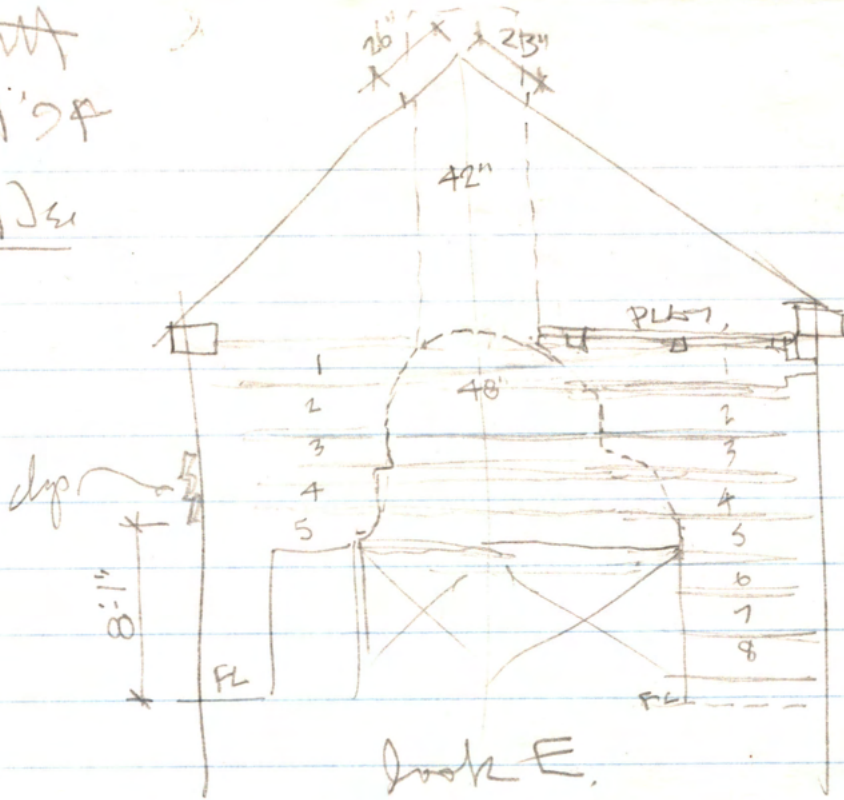 26"
23"
42"
PLAT.
48"
1
2
3
4
5
1
2
3
4
5
6
7
8
8'-1"
FL
FL
look E.